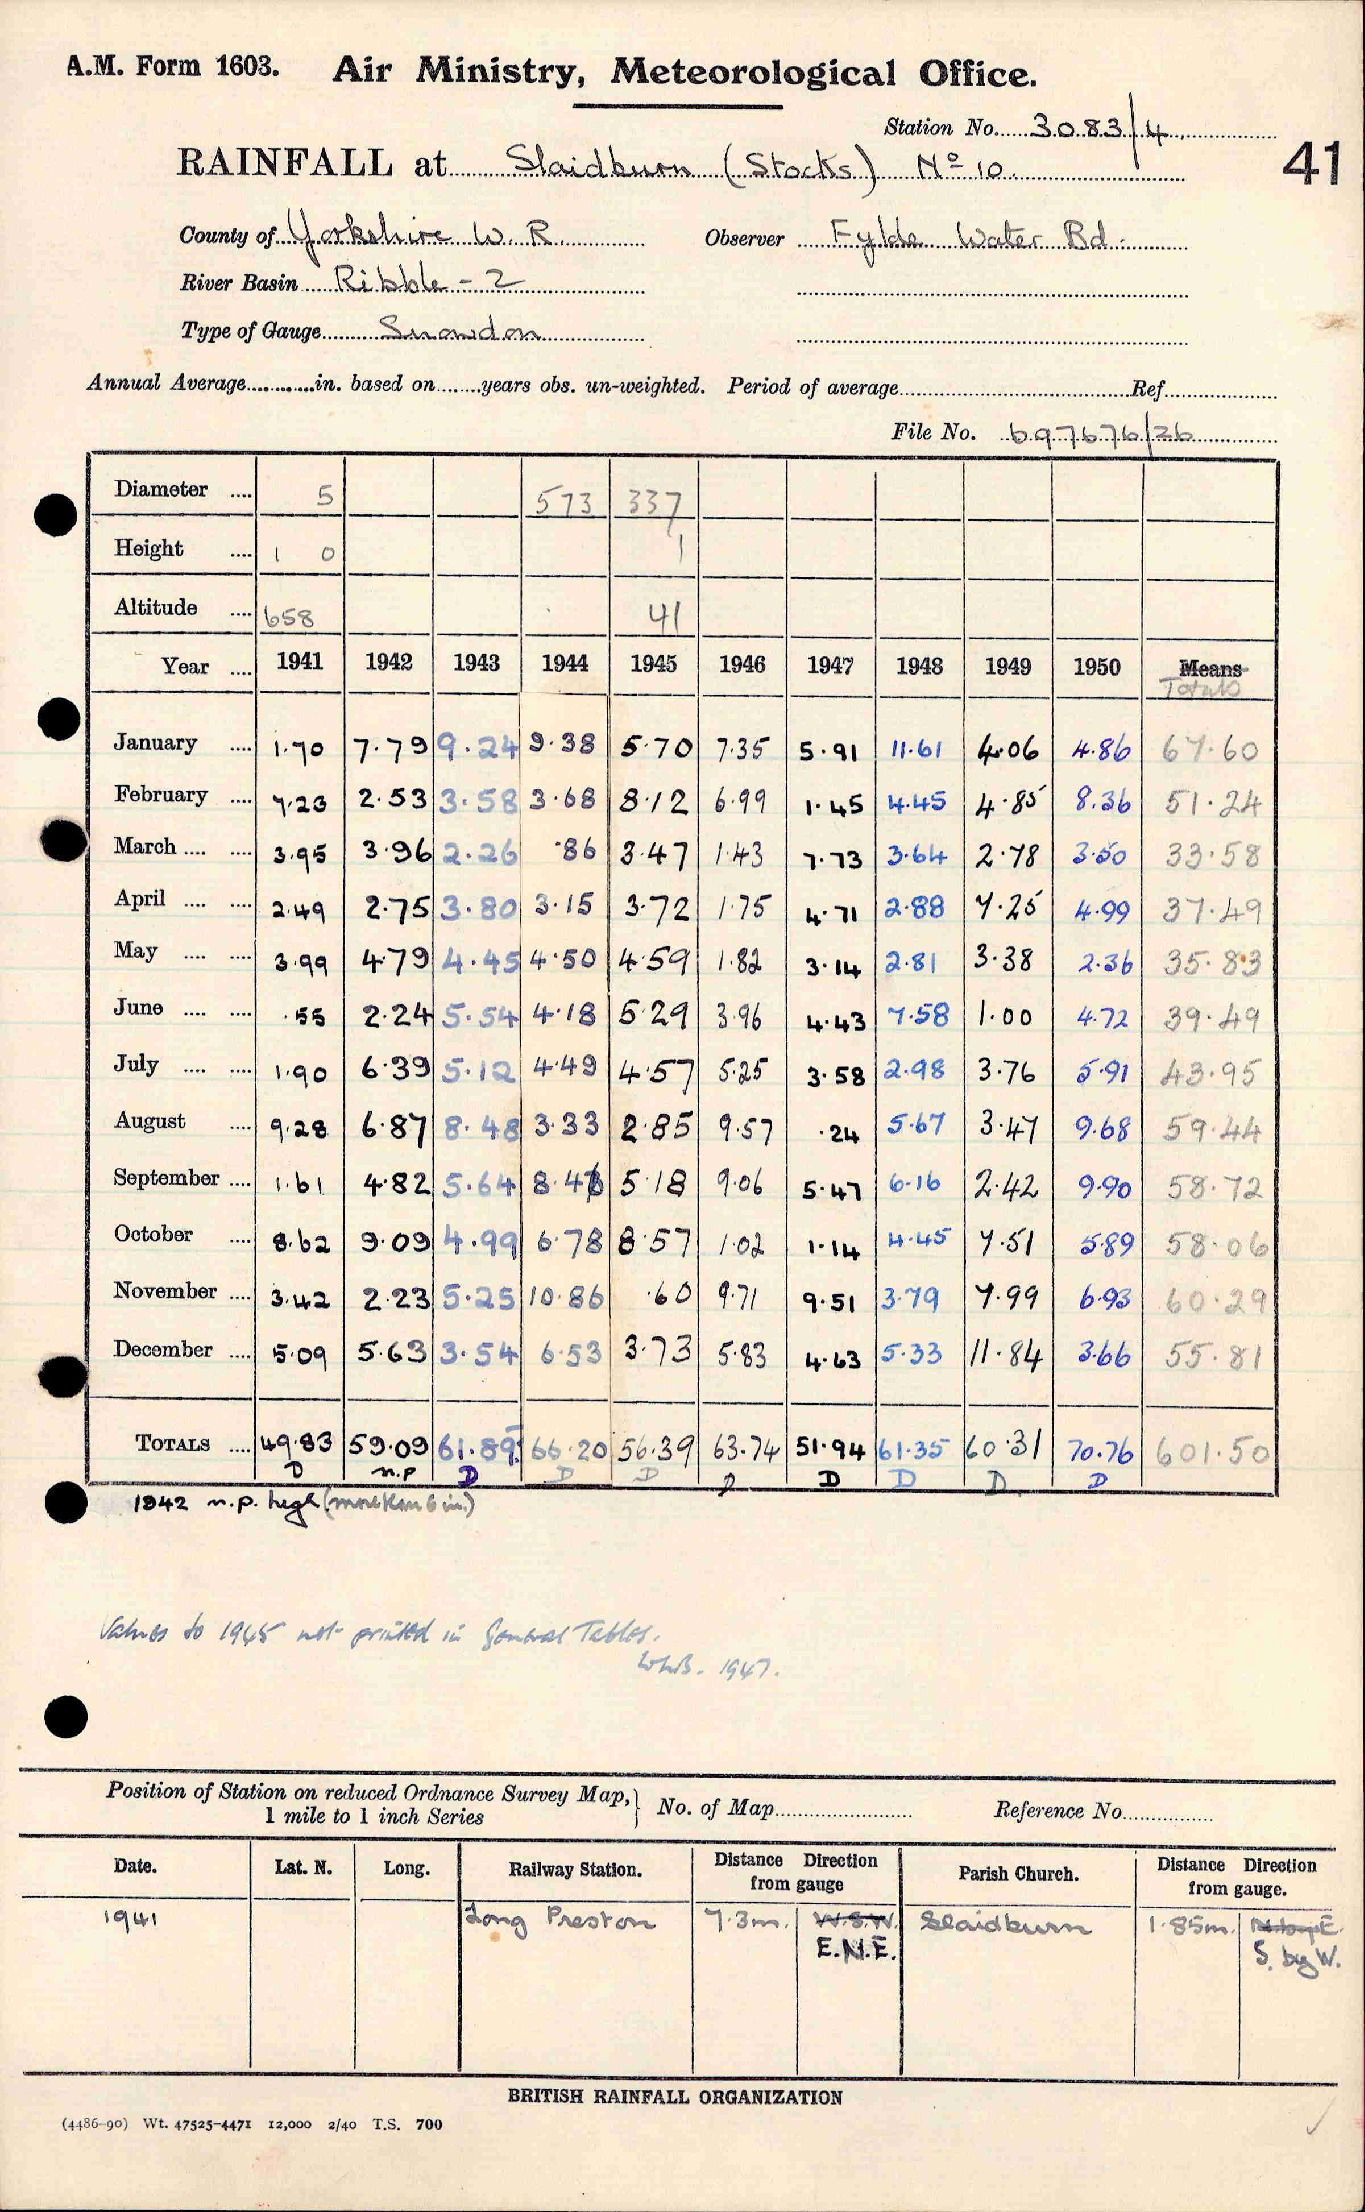 A.M. Form 1603. Air Ministry, Meteorological Office.
Station No. 3083/4.
RAINFALL at Slaidburn (Stocks) Nº 10. 41
County of Yorkshire W. R. Observer Fylde Water Bd.
River Basin Ribble - 2
Type of Gauge Snowdon
Annual Average............in. based on.......years obs. un-weighted. Period of average Ref.
File No. 697676/26
Diameter .... 5 573 337
Height .... 1 0 1
Altitude .... 658 41
Year .... 1941 1942 1943 1944 1945 1946 1947 1948 1949 1950 Means
Totals
January .... 1.70 7.79 9.24 9.38 5.70 7.35 5.91 11.61 4.06 4.86 67.60
February .... 7.23 2.53 3.58 3.68 8.12 6.99 1.45 4.45 4.85 8.36 51.24
March .... .... 3.95 3.96 2.26 .86 3.47 1.43 7.73 3.64 2.78 3.50 33.58
April .... .... 2.49 2.75 3.80 3.15 3.72 1.75 4.71 2.88 7.25 4.99 37.49
May .... .... 3.99 4.79 4.45 4.50 4.59 1.82 3.14 2.81 3.38 2.36 35.83
June .... .... .55 2.24 5.54 4.18 5.29 3.96 4.43 7.58 1.00 4.72 39.49
July .... .... 1.90 6.39 5.12 4.49 4.57 5.25 3.58 2.98 3.76 5.91 43.95
August .... 9.28 6.87 8.48 3.33 2.85 9.57 .24 5.67 3.47 9.68 59.44
September .... 1.61 4.82 5.64 8.46 5.18 9.06 5.47 6.16 2.42 9.90 58.72
October .... 8.62 9.09 4.99 6.78 8.57 1.02 1.14 4.45 7.51 5.89 58.06
November .... 3.42 2.23 5.25 10.86 .60 9.71 9.51 3.79 7.99 6.93 60.29
December .... 5.09 5.63 3.54 6.53 3.73 5.83 4.63 5.33 11.84 3.66 55.81
TOTALS .... 49.83 59.09 61.89 66.20 56.39 63.74 51.94 61.35 60.31 70.76 601.50
D n.p D D D D D D D D
1942 n.p. high (more than 6 in.)
Values to 1945 not printed in General Tables.
W.L.B. 1947.
Position of Station on reduced Ordnance Survey Map, 1 mile to 1 inch Series } No. of Map Reference No.
Date. Lat. N. Long. Railway Station. Distance Direction from gauge Parish Church. Distance Direction from gauge.
1941 Long Preston 7.3m. W.S.W. Slaidburn 1.85m. N. by E.
E.N.E. S. by W.
BRITISH RAINFALL ORGANIZATION
(4486-90) Wt. 47525-4471 12,000 2/40 T.S. 700